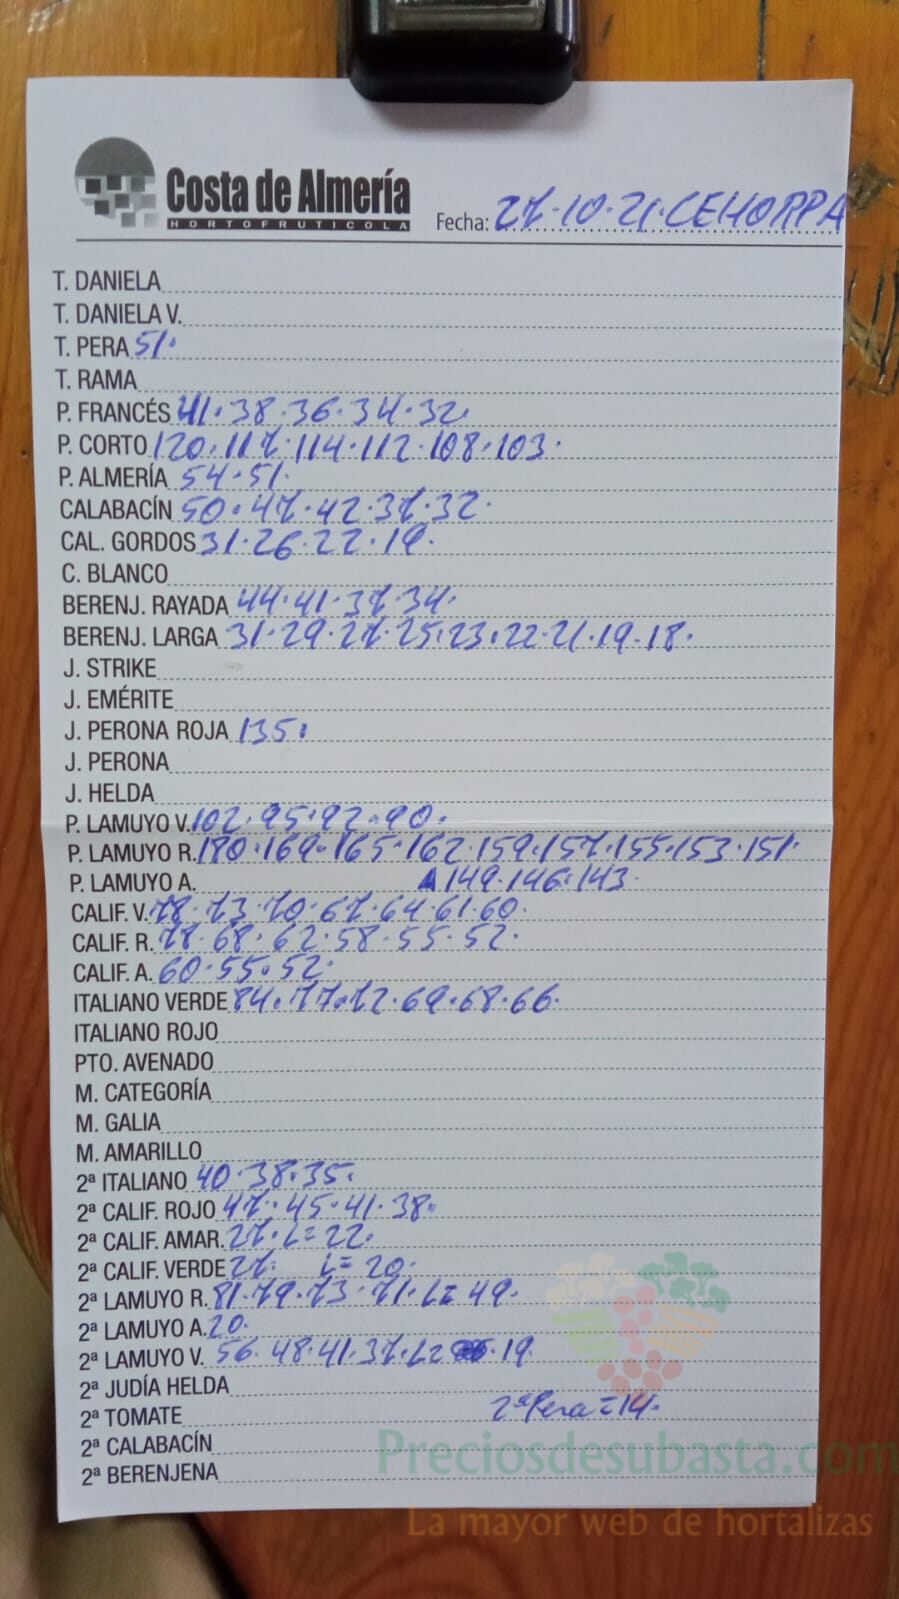 Costa de Almería
HORTOFRUTICOLA
Fecha: 27·10·21·CEHORPA
T. DANIELA
T. DANIELA V.
T. PERA 51·
T. RAMA
P. FRANCÉS 41·38·36·34·32·
P. CORTO 120·117·114·112·108·103·
P. ALMERÍA 54·51·
CALABACÍN 50·47·42·37·32·
CAL. GORDOS 31·26·22·19·
C. BLANCO
BERENJ. RAYADA 44·41·37·34·
BERENJ. LARGA 31·29·27·25·23·22·21·19·18·
J. STRIKE
J. EMÉRITE
J. PERONA ROJA 135·
J. PERONA
J. HELDA
P. LAMUYO V. 102·95·92·90·
P. LAMUYO R. 180·169·165·162·159·157·155·153·151·
P. LAMUYO A. 149·146·143·
CALIF. V. 78·73·70·67·64·61·60·
CALIF. R. 78·68·62·58·55·52·
CALIF. A. 60·55·52·
ITALIANO VERDE 84·77·72·69·68·66·
ITALIANO ROJO
PTO. AVENADO
M. CATEGORÍA
M. GALIA
M. AMARILLO
2ª ITALIANO 40·38·35·
2ª CALIF. ROJO 47·45·41·38·
2ª CALIF. AMAR. 27·L=22·
2ª CALIF. VERDE 27· L=20·
2ª LAMUYO R. 81·79·73·71·L=49·
2ª LAMUYO A. 20·
2ª LAMUYO V. 56·48·41·37·L= 19·
2ª JUDÍA HELDA
2ª TOMATE 2ª Pera=14·
2ª CALABACÍN
2ª BERENJENA
Preciosdesubasta.com
La mayor web de hortalizas